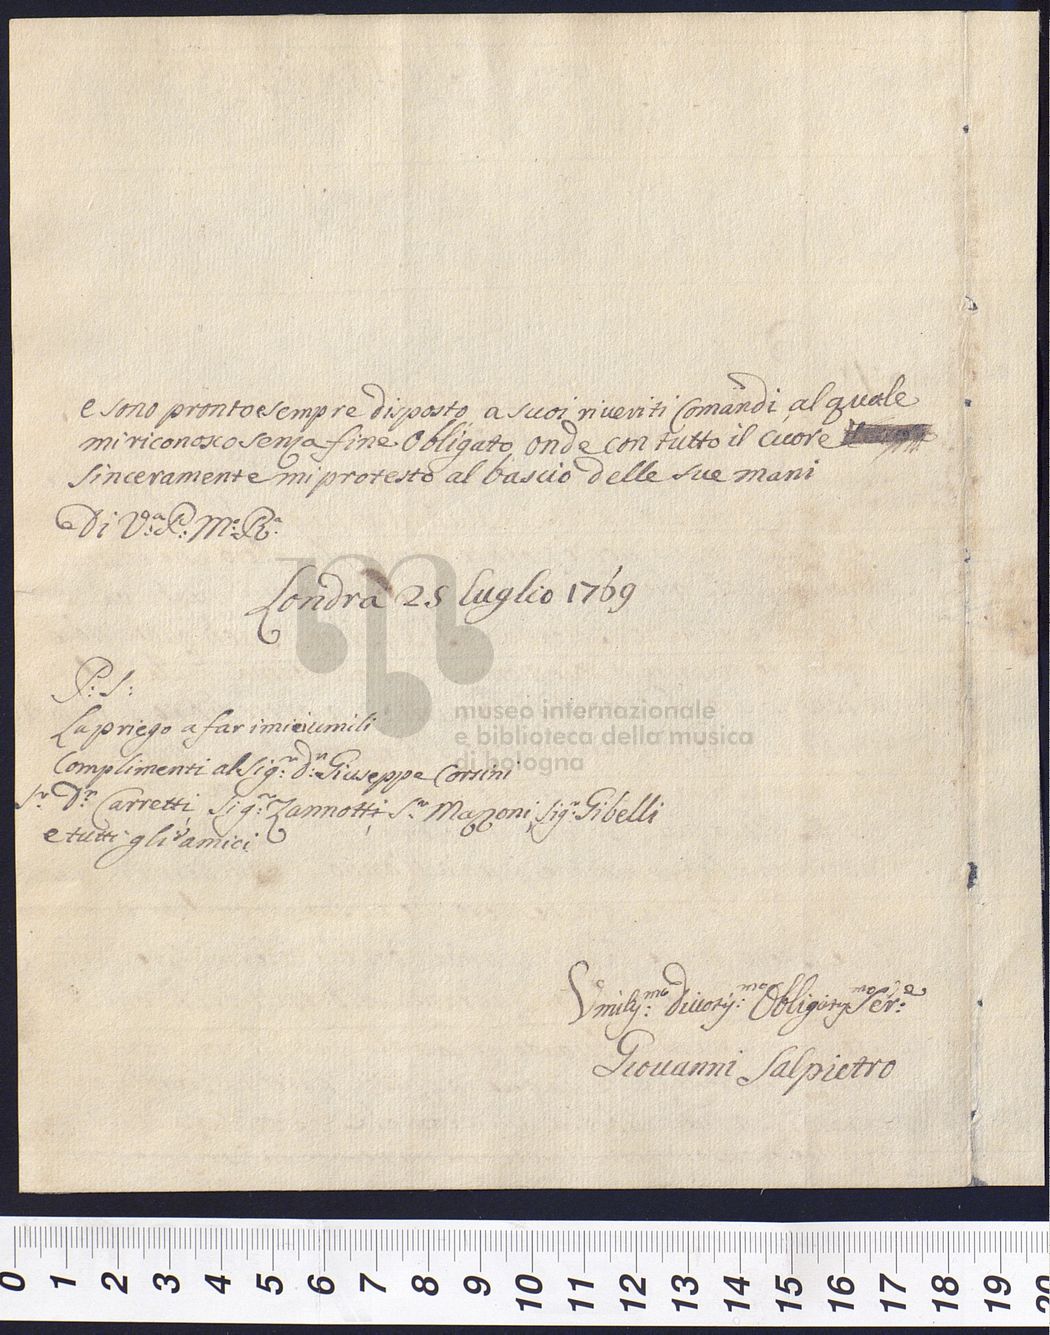 e sono pronto e sempre disposto a suoi riveriti Comandi, al quale
mi riconosco senza fine Obligato, onde con tutto il cuore
sinceramente mi protesto al bascio delle sue mani
Di V.ª P: M: R.ª
Londra 25 luglio 1769
P: S:
La priego a far i miei umili
Complimenti al Sig.r D.n Giuseppe Corsini
S.r D.r Carretti, Sig.r Zannotti, S.r Mazzoni, Sig.r Gibelli
e tutti gli amici
museo internazionale
e biblioteca della musica
di bologna
Giovanni Salpietro
0 1 2 3 4 5 6 7 8 9 10 11 12 13 14 15 16 17 18 19 20